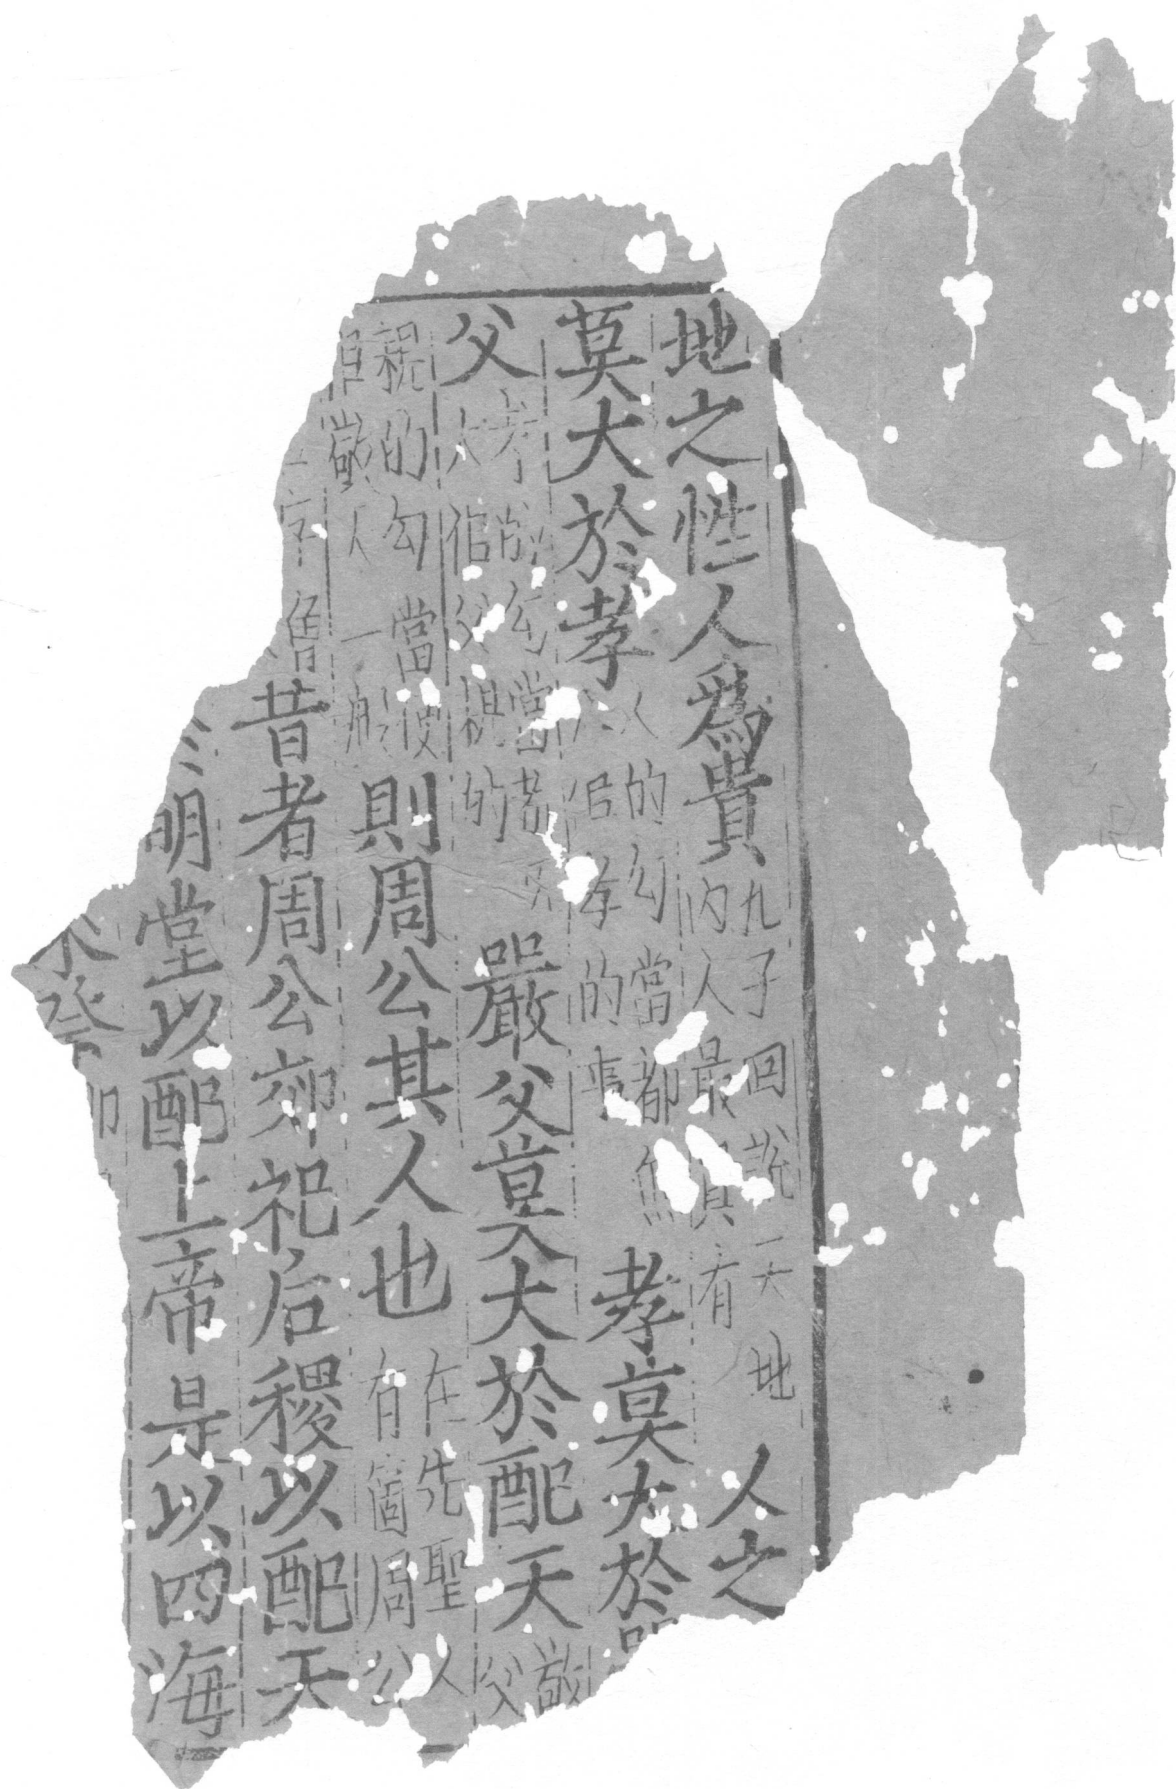 地之性人爲貴
孔子回說天地
內人最貴有
人之
莫大於孝
人的勾當都無
大佀孝的事
孝莫大於
父
孝的勾當都無
大佀父親的
嚴父莫大於配天
敬
父
親的勾當便
佀敬天一般
則周公其人也
在先聖人
有箇周公
字魯
昔者周公郊祀后稷以配天
明堂以配上帝是以四海
來祭